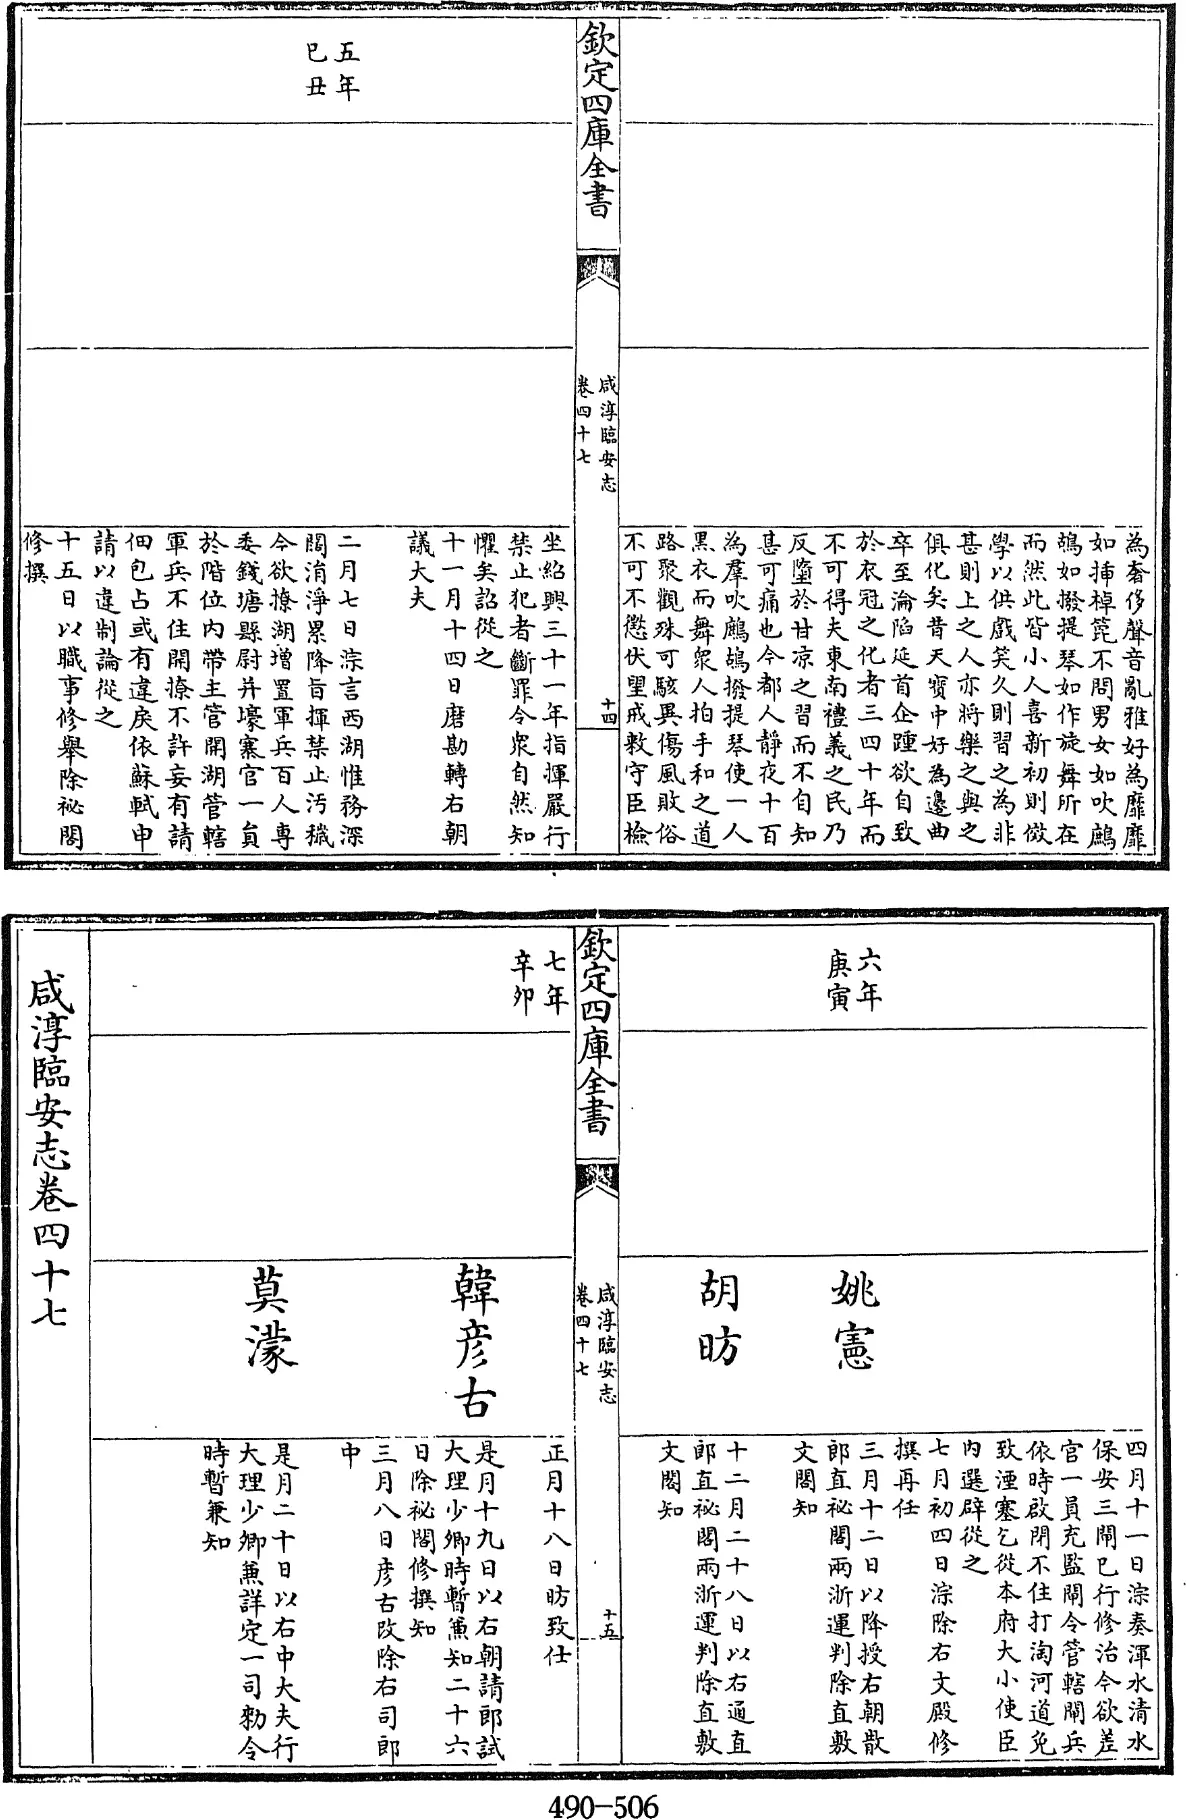 為奢侈聲音亂雅好為靡靡
如插棹箆不問男女如吹鷓
鴣如撥提琴如作旋舞所在
而然此皆小人喜新初則倣
學以供戲笑久則習之為非
甚則上之人亦將樂之與之
俱化矣昔天寶中好為邊曲
卒至淪陷延首企踵欲自致
於衣冠之化者三四十年而
不可得夫東南禮義之民乃
反墮於甘凉之習而不自知
甚可痛也今都人靜夜十百
為羣吹鷓鴣撥提琴使一人
黑衣而舞衆人拍手和之道
路聚觀殊可駭異傷風敗俗
不可不懲伏望戒敕守臣檢
欽定四庫全書
咸淳臨安志
卷四十七
十四
坐紹興三十一年指揮嚴行
禁止犯者斷罪令衆自然知
懼矣詔從之
十一月十四日磨勘轉右朝
議大夫
五年
己丑
二月七日淙言西湖惟務深
闊消淨累降旨揮禁止汚穢
今欲撩湖增置軍兵百人專
委錢塘縣尉并壕寨官一員
於階位內帶主管開湖管轄
軍兵不住開撩不許妄有請
佃包占或有違戾依蘇軾申
請以違制論從之
十五日以職事修舉除祕閣
修撰
六年
庚寅
四月十一日淙奏渾水清水
保安三閘已行修治今欲差
官一員充監閘令管轄閘兵
依時啟閉不住打淘河道免
致湮塞乞從本府大小使臣
內選辟從之
七月初四日淙除右文殿修
撰再任
姚憲
三月十二日以降授右朝散
郎直祕閣兩浙運判除直敷
文閣知
胡昉
十二月二十八日以右通直
郎直祕閣兩浙運判除直敷
文閣知
欽定四庫全書
咸淳臨安志
卷四十七
十五
七年
辛卯
正月十八日昉致仕
韓彥古
是月十九日以右朝請郎試
大理少卿時暫兼知二十六
日除祕閣修撰知
三月八日彥古改除右司郎
中
莫濛
是月二十日以右中大夫行
大理少卿兼詳定一司勑令
時暫兼知
咸淳臨安志卷四十七
490-506